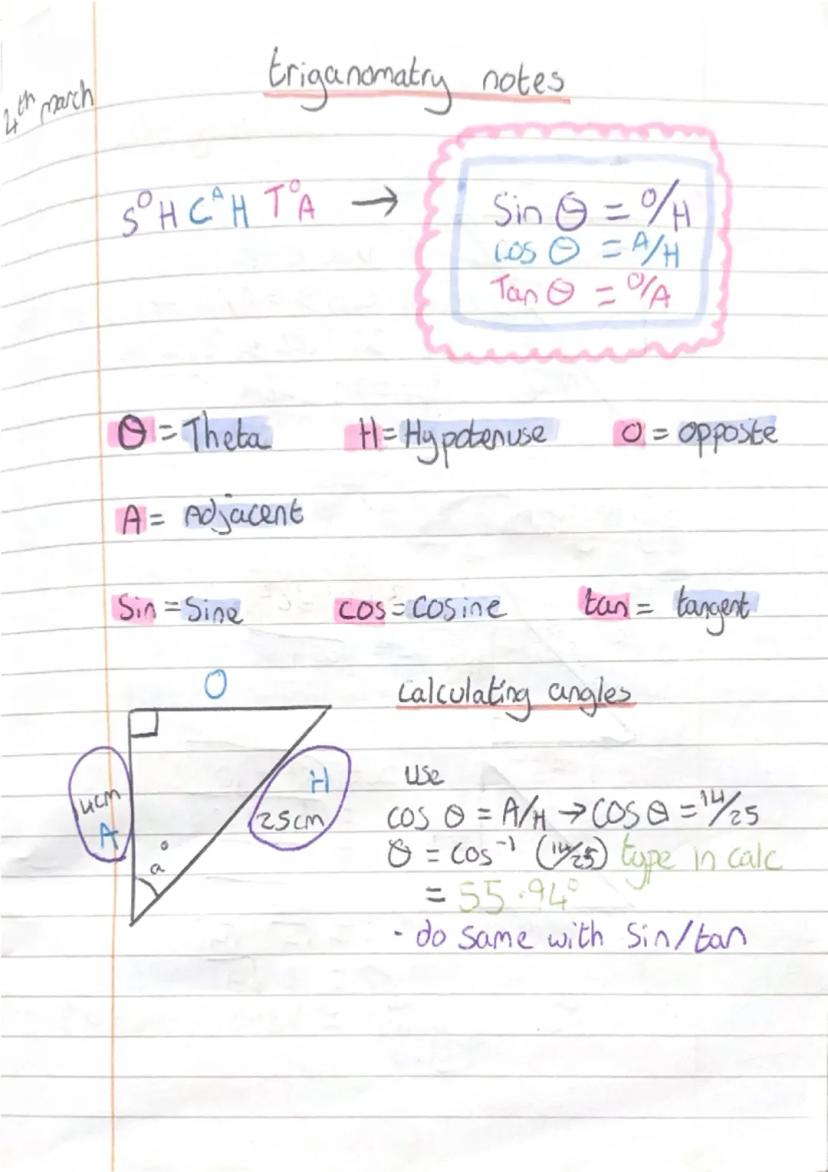 triganomatry notes
4th march
SOH CAH TOA →
Sin θ = O/H
cos θ = A/H
Tan θ = O/A
θ = Theta H = Hypotenuse O = opposite
A = Adjacent
Sin = Sine cos = cosine tan = tangent
O
calculating angles
14cm
A
H
25cm
a°
use
cos θ = A/H → cos θ = 14/25
θ = cos⁻¹ (14/25) type in calc
= 55.94°
- do same with sin/tan